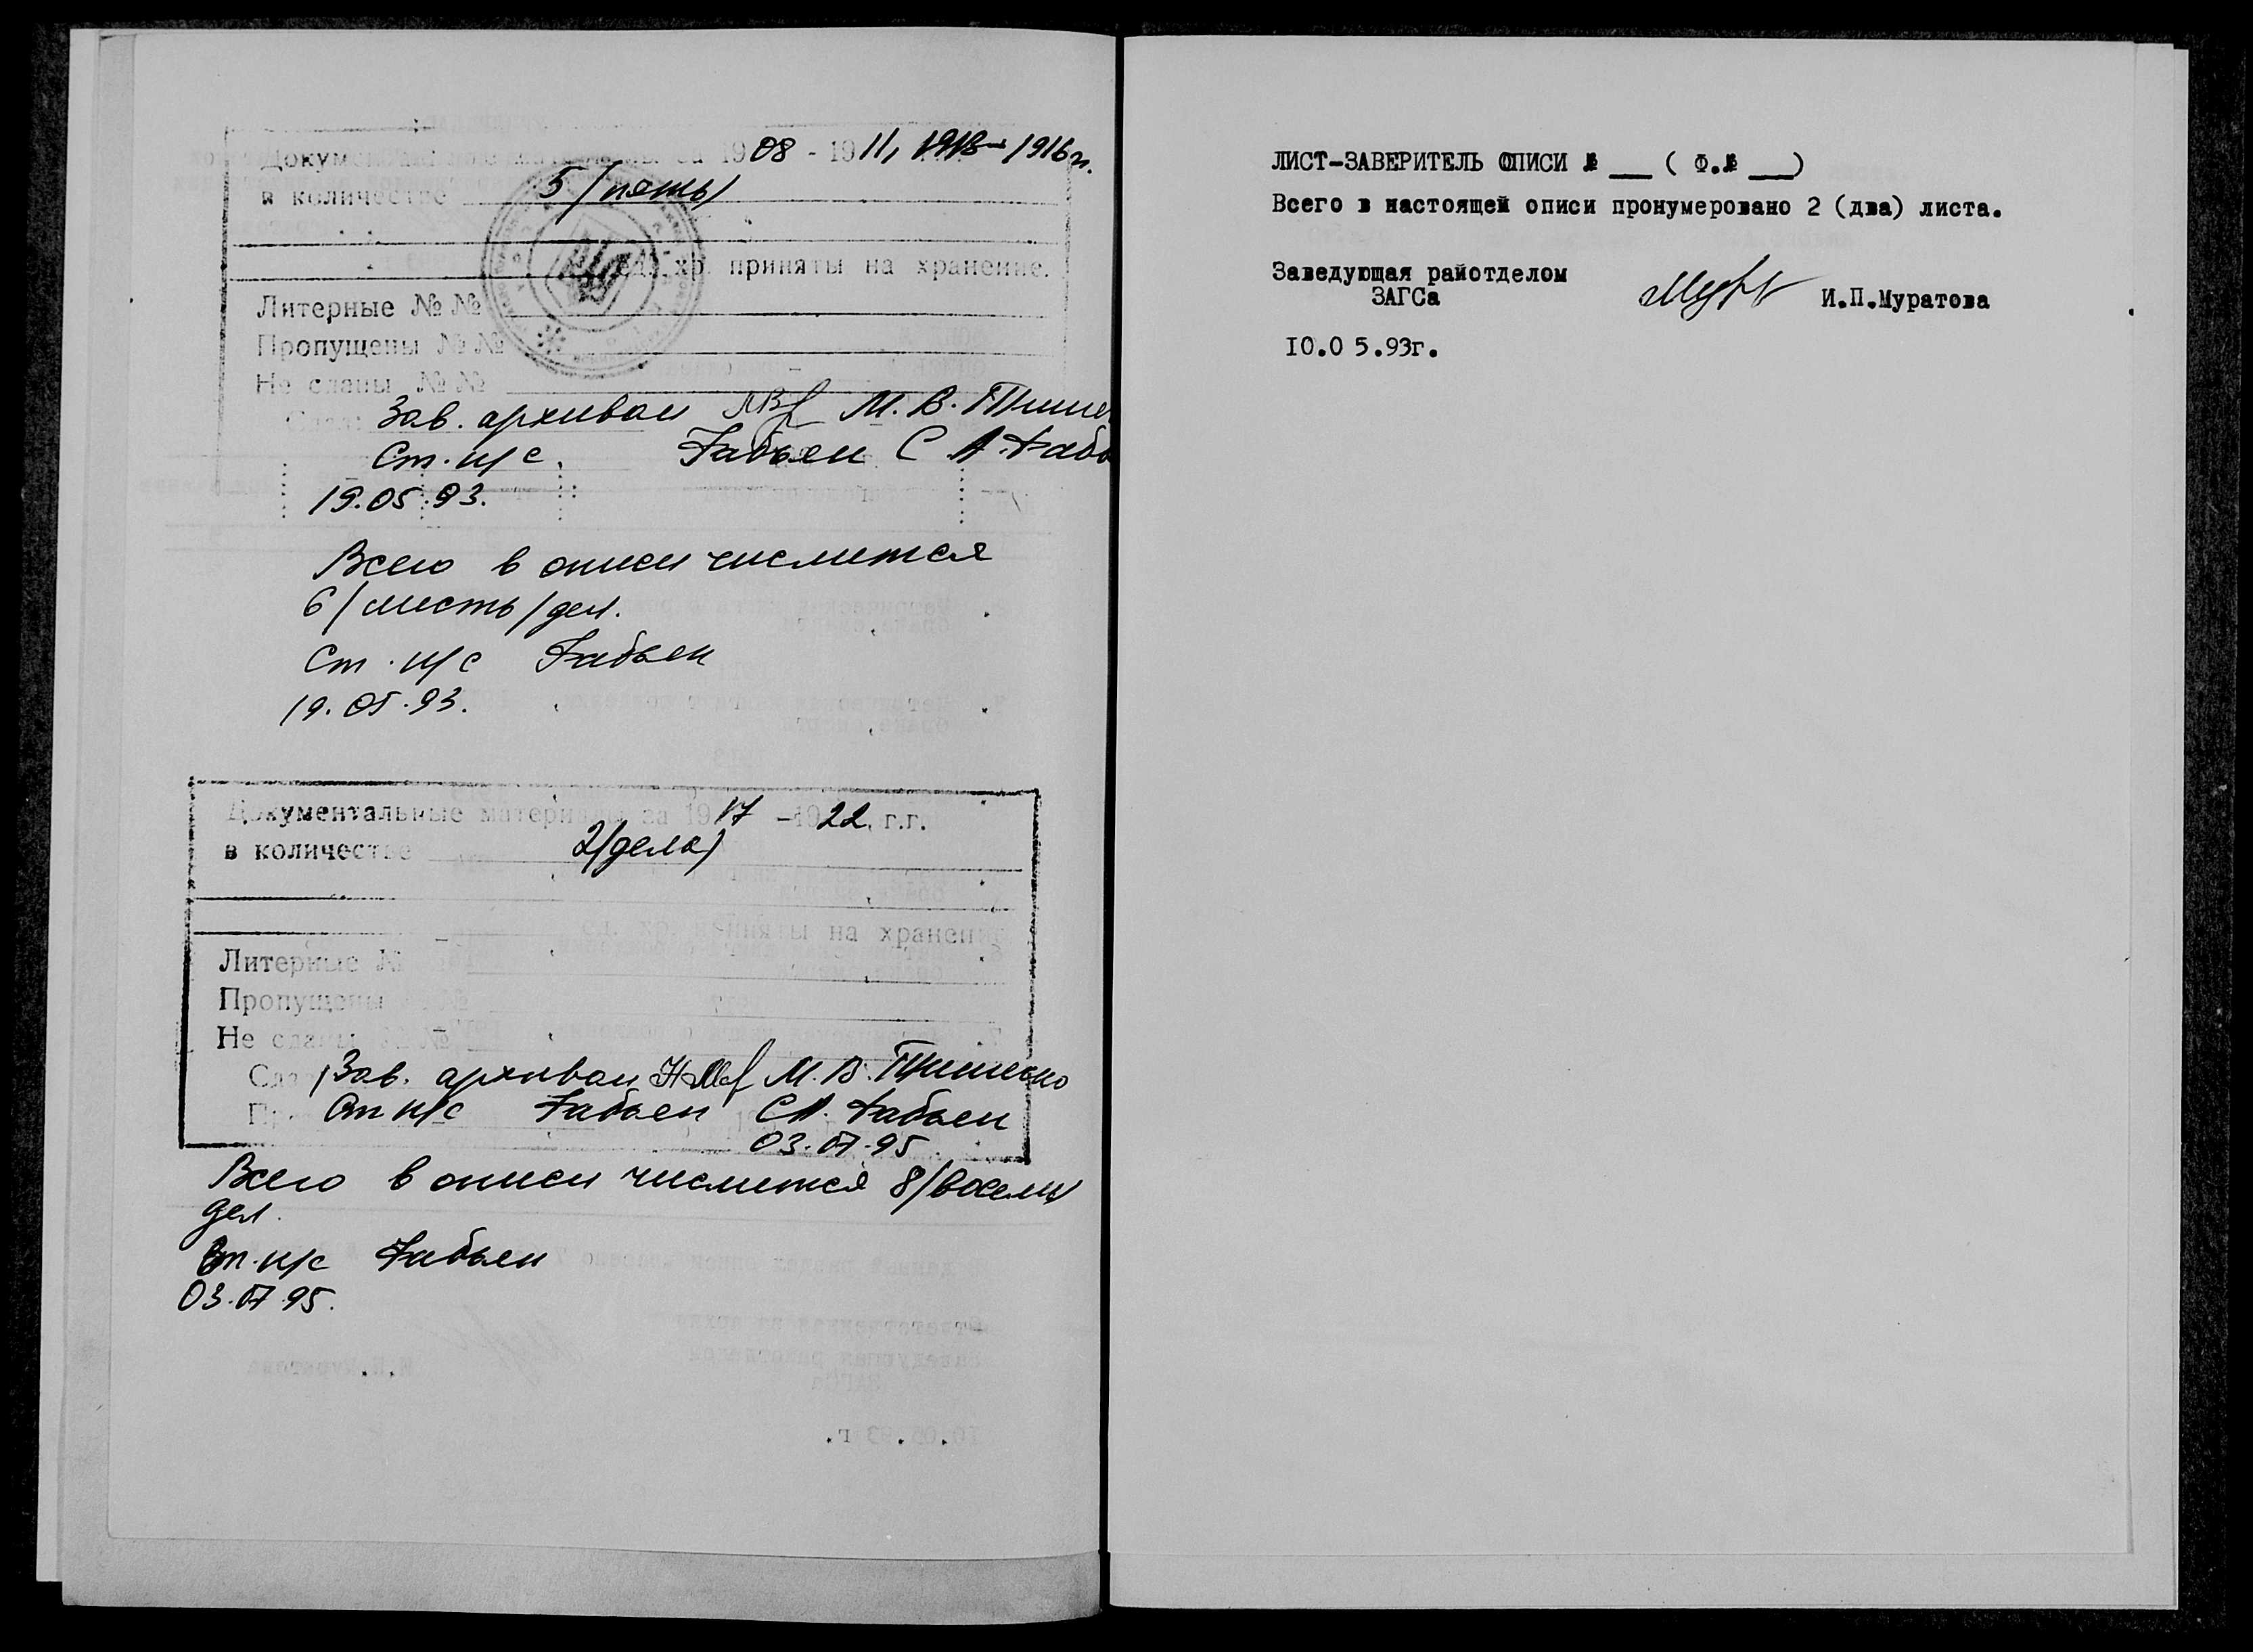 Документальные материалы за 1908 - 1911, 1913-1916 гг.
в количестве 5 /пять/
ед. хр. приняты на хранение.
Литерные №№
Пропущены №№
Не сданы №№
Зав. архивом М. В. Тише
Ст. н/с. Бабьен С. А.
19.05.93.
Всего в описи числится
6 /шесть/ дел.
Ст. н/с
19.05.93.
Документальные материалы за 1917 - 1922 г.г.
в количестве 2 /дела/
ед. хр. приняты на хранение
Литерные №
Пропущены №№
Не сданы №№
Зав. архивом М. В. Тишенко
Ст н/с С.А.
03.07.95
Всего в описи числится 8 /восемь/
дел.
Ст. н/с
03.07.95.
ЛИСТ-ЗАВЕРИТЕЛЬ ОПИСИ № __ ( Ф.№ __)
Всего в настоящей описи пронумеровано 2 (два) листа.
Заведующая райотделом
ЗАГСа И.П.Муратова
10.05.93г.